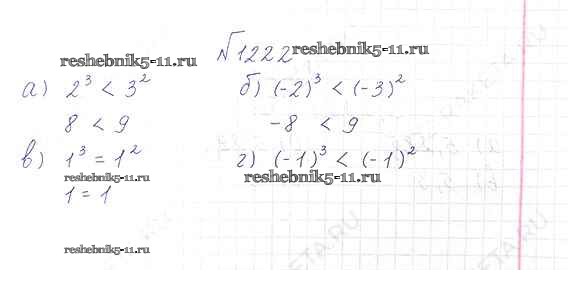 №1222
reshebnik5-11.ru reshebnik5-11.ru
а) 2³ < 3² б) (-2)³ < (-3)²
8 < 9 -8 < 9
в) 1³ = 1² г) (-1)³ < (-1)²
reshebnik5-11.ru reshebnik5-11.ru
1 = 1
reshebnik5-11.ru